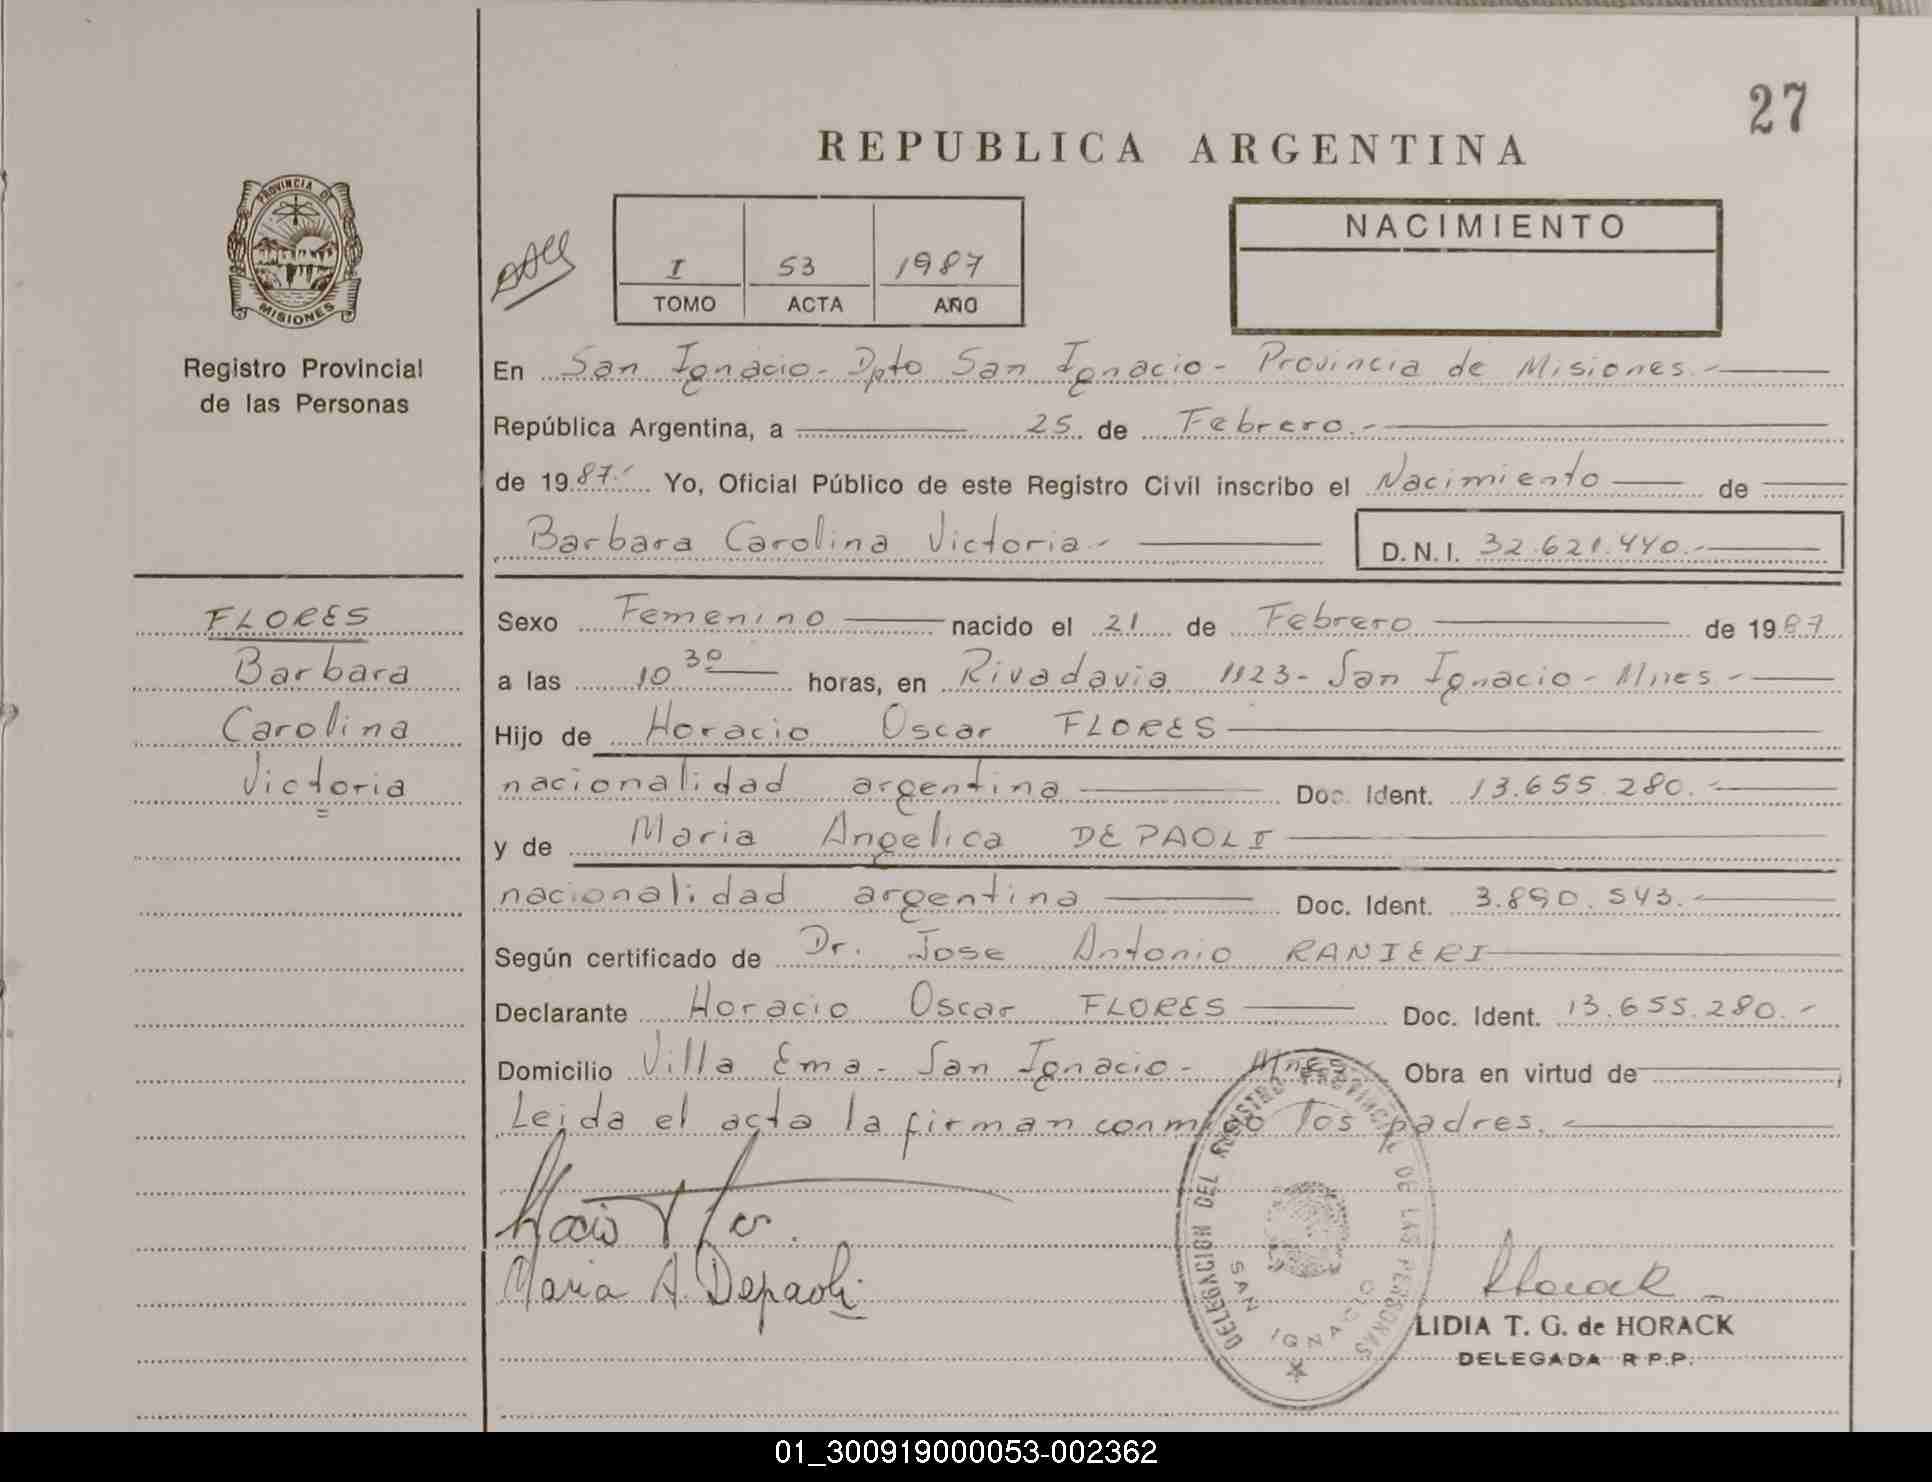 27
REPUBLICA ARGENTINA
PROVINCIA DE
MISIONES
Registro Provincial
de las Personas
I 53 1987
TOMO ACTA AÑO
NACIMIENTO
En San Ignacio - Dpto San Ignacio - Provincia de Misiones.-
República Argentina, a 25 de Febrero.-
de 1987.- Yo, Oficial Público de este Registro Civil inscribo el Nacimiento de
Barbara Carolina Victoria.- D.N.I. 32.621.440.-
FLORES
Barbara
Carolina
Victoria
Sexo Femenino nacido el 21 de Febrero de 1987
a las 10 30 horas, en Rivadavia 1123 - San Ignacio - Mnes.-
Hijo de Horacio Oscar FLORES
nacionalidad argentina Doc. Ident. 13.655.280.-
y de Maria Angelica DEPAOLI
nacionalidad argentina Doc. Ident. 3.890.543.-
Según certificado de Dr. Jose Antonio RANIERI
Declarante Horacio Oscar FLORES Doc. Ident. 13.655.280.-
Domicilio Villa Ema - San Ignacio - Mnes Obra en virtud de
Leida el acta la firman conmigo los padres.
Maria A. Depaoli
DELEGACION DEL REGISTRO PROVINCIAL DE LAS PERSONAS
SAN IGNACIO
Horack
LIDIA T. G. de HORACK
DELEGADA R.P.P.
01_300919000053-002362